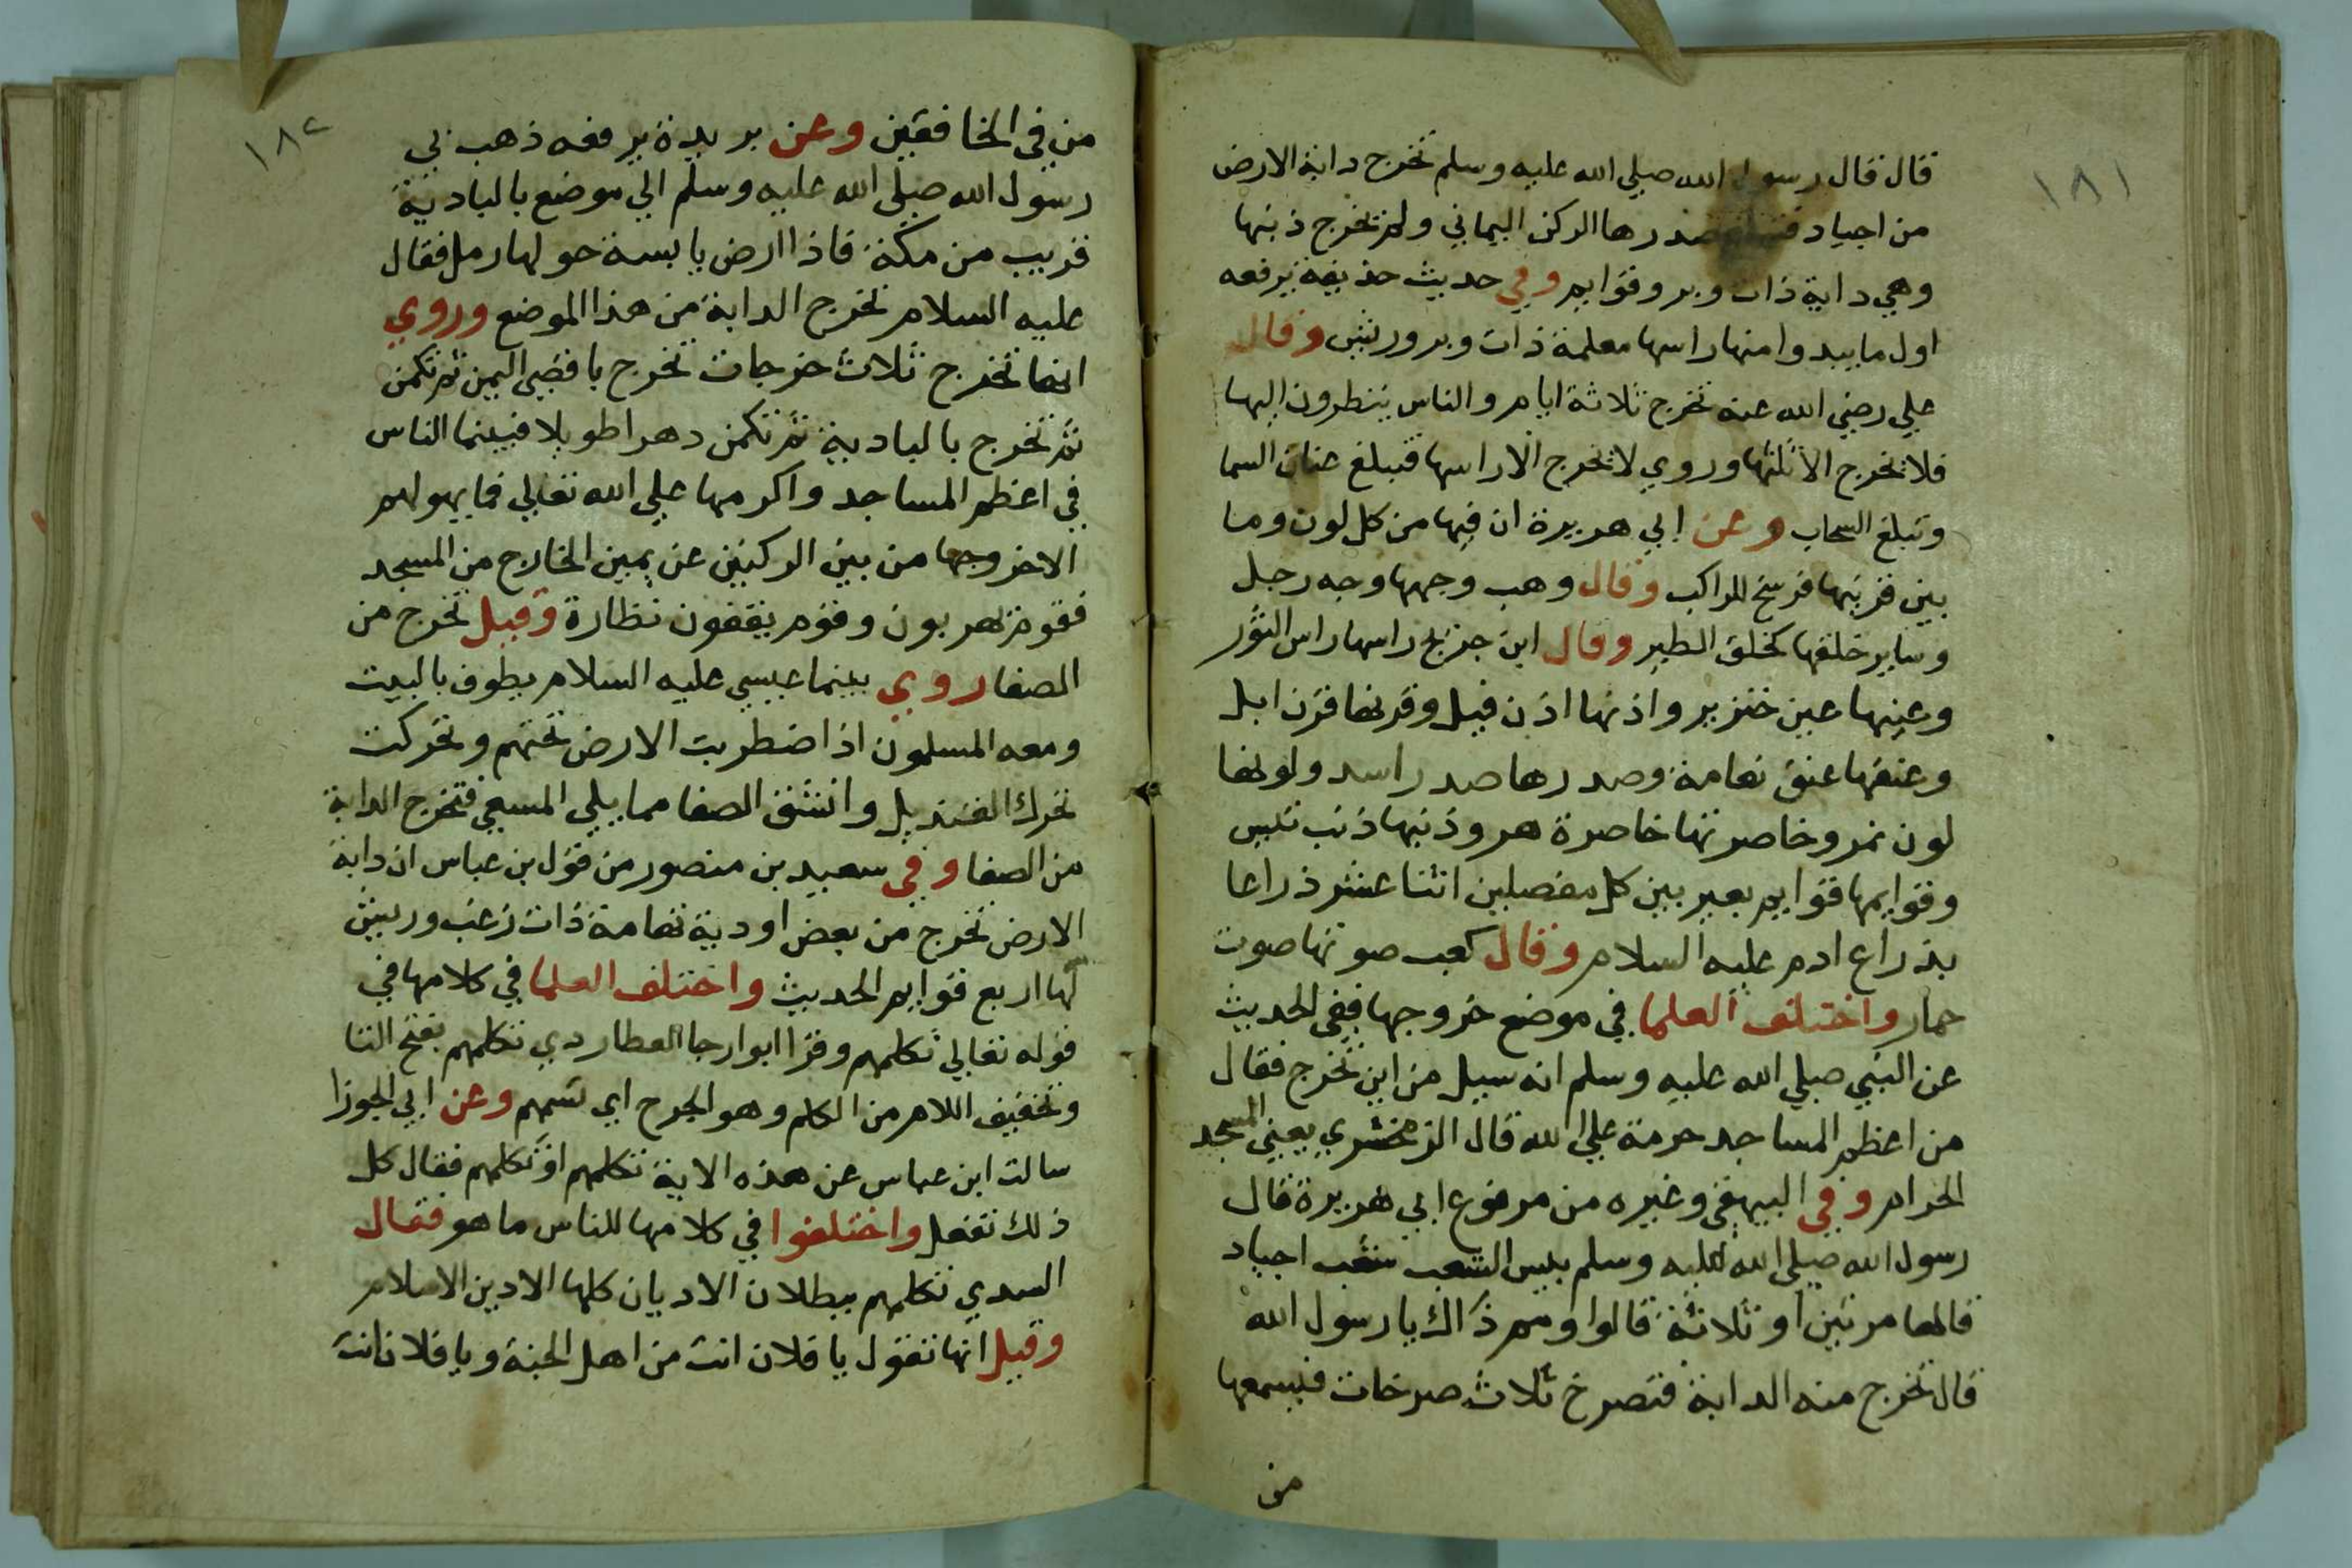 ١٨١
قال قال رسول الله صلي الله عليه وسلم تخرج دابة الارض
من اجياد فيبلغ صدرها الركن اليماني ولم تخرج ذنبها
وهي دابة ذات وبر وقوايم وفي حديث حذيفة يرفعه
اول ما يبدوا منها راسها معلمة ذات وبر وريش وقال
علي رضي الله عنه تخرج ثلاثة ايام والناس ينظرون اليها
فلا تخرج الا ثلثها وروي لا تخرج الا راسها فتبلغ عنان السما
وتبلغ السحاب وعن ابي هريرة ان فيها من كل لون وما
بين قرنيها فرسخ للراكب وقال وهب وجهها وجه رجل
وساير خلقها كخلق الطير وقال ابن جريج راسها راس الثور
وعينها عين خنزير واذنها اذن فيل وقرنها قرن ابل
وعنقها عنق نعامة وصدرها صدر اسد ولونها
لون نمر وخاصرتها خاصرة هر وذنبها ذنب تيس
وقوايمها قوايم بعير بين كل مفصلين اثنا عشر ذراعا
بذراع ادم عليه السلام وقال كعب صوتها صوت
حمار واختلف العلما في موضع خروجها ففي الحديث
عن النبي صلي الله عليه وسلم انه سيل من اين تخرج فقال
من اعظم المساجد حرمة علي الله قال الزمخشري يعني المسجد
الحرام وفي البيهقي وغيره من مرفوع ابي هريرة قال
رسول الله صلي الله عليه وسلم بليس الشعب شعب اجياد
قالها مرتين او ثلاثة قالوا ومم ذاك يا رسول الله
قال تخرج منه الدابة فتصرخ ثلاث صرخات فيسمعها
من
١٨٢
من في الخافقين وعن بريدة يرفعه ذهب بي
رسول الله صلي الله عليه وسلم الي موضع بالبادية
قريب من مكة فاذا ارض يابسة حولها رمل فقال
عليه السلام تخرج الدابة من هذا الموضع وروي
انها تخرج ثلاث خرجات تخرج باقصي اليمن ثم تكمن
ثم تخرج بالبادية ثم تكمن دهرا طويلا فبينما الناس
في اعظم المساجد واكرمها علي الله تعالي فما يهولهم
الا خروجها من بين الركنين عن يمين الخارج من المسجد
فقوم يهربون وقوم يقفون نظارة وقيل تخرج من
الصفا روي بينما عيسي عليه السلام يطوف بالبيت
ومعه المسلمون اذا ضطربت الارض تحتهم وتحركت
تحرك القنديل وانشق الصفا مما يلي المسعي فتخرج الدابة
من الصفا وفي سعيد بن منصور من قول بن عباس ان دابة
الارض تخرج من بعض اودية تهامة ذات زغب وريش
لها اربع قوايم الحديث واختلف العلما في كلامها في
قوله تعالي تكلمهم وقرا ابوا رجا العطاردي تكلمهم بفتح التا
وتخفيف اللام من الكلم وهو الجرح اي تسمهم وعن ابي الجوزا
سالت ابن عباس عن هذه الاية تكلمهم او تكلمهم فقال كل
ذلك تفعل واختلفوا في كلامها للناس ما هو فقال
السدي تكلمهم ببطلان الاديان كلها الا دين الاسلام
وقيل انها تقول يا فلان انت من اهل الجنة ويا فلان انت